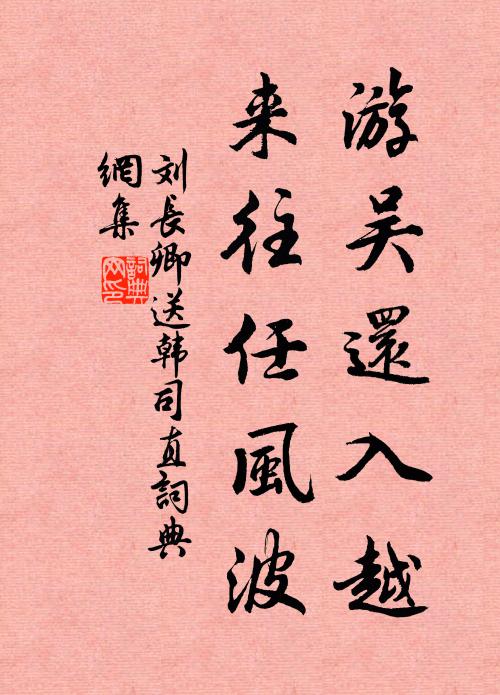 游吴還入越
来往任風波
刘長卿送韩司直詞典
網集
詞典
网印